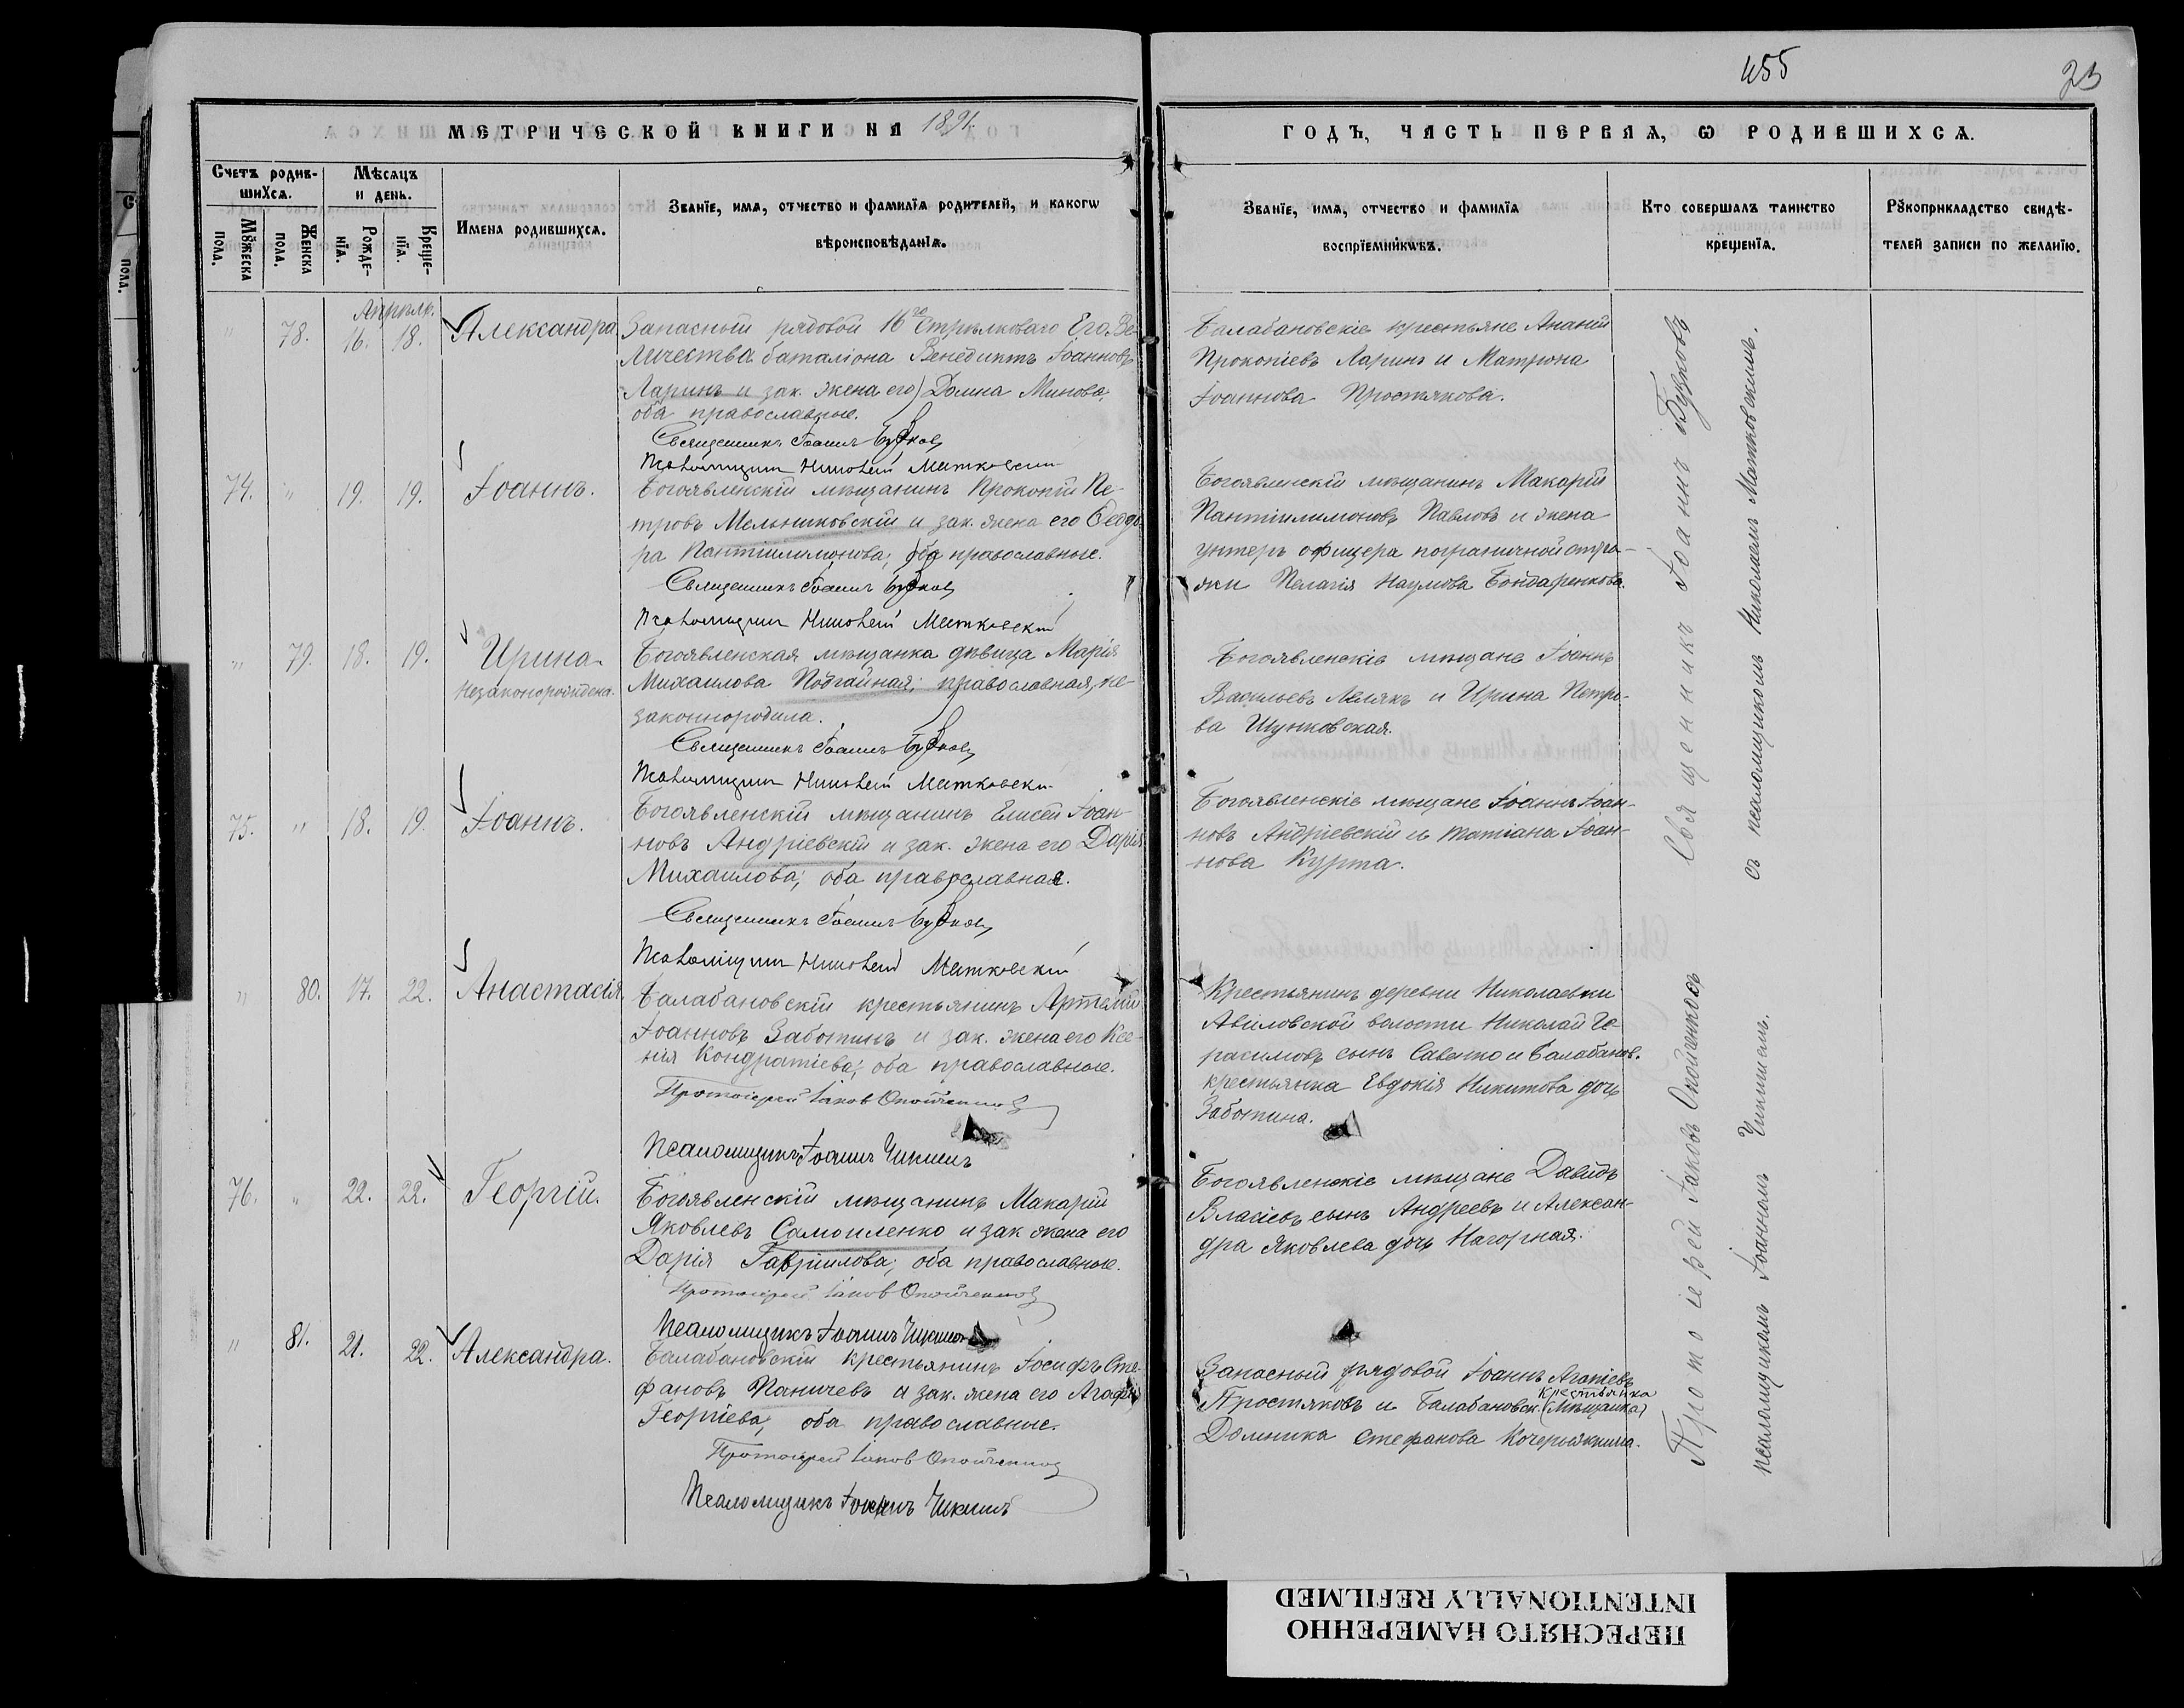 455
23
МЕТРИЧЕСКОЙ КНИГИ НА 1891
ГОДЪ, ЧАСТЬ ПЕРВАЯ, Ѡ РОДИВШИХСЯ.
Счетъ родив-
шихся.
Мѣсяцъ
и день.
Мꙋжеска
пола.
Женска
пола.
Рожде-
нїя.
Креще-
нїя.
Имена родившихся.
Званїе, имя, отчество и фамилїя родителей, и какогѡ
вѣроисповѣданїя.
Званїе, имя, отчество и фамилїя
воспрїемникѡвъ.
Кто совершалъ таинство
крещенїя.
Рꙋкоприкладство свидѣ-
телей записи по желанїю.
Апрѣль.
" 78. 16. 18. Александра
Запасный рядовой 16го Стрѣлковаго Его Ве-
личества баталіона Венедиктъ Іоанновъ
Ларинъ и зак. жена его Домна Минова,
оба православные.
Священникъ Іоаннъ Будковъ
Псаломщикъ Николай Матковскій
Балабановскіе крестьяне Ананій
Прокопіевъ Ларинъ и Матрона
Іоаннова Простякова.
74. " 19. 19. Іоаннъ.
Богоявленскій мѣщанинъ Прокопій Пе-
тровъ Мельниковскій и зак. жена его Ѳеодо-
ра Пантіилимонова; оба православные.
Священникъ Іоаннъ Будковъ
Псаломщикъ Николай Матковскій
Богоявленскій мѣщанинъ Макарій
Пантіилимоновъ Павловъ и жена
унтеръ офицера пограничной стра-
жи Пелагія Наумова Бондаренкова.
" 79. 18. 19. Ирина
незаконорождена.
Богоявленская мѣщанка дѣвица Марія
Михаилова Подгайная; православная, не-
законнородила.
Священникъ Іоаннъ Будковъ
Псаломщикъ Николай Матковскій
Богоявленскіе мѣщане Іоаннъ
Васильевъ Лелякъ и Ирина Петро-
ва Шунковская.
75. " 18. 19. Іоаннъ.
Богоявленскій мѣщанинъ Елисей Іоан-
новъ Андріевскій и зак. жена его Дарія
Михаилова; оба православные.
Священникъ Іоаннъ Будковъ
Псаломщикъ Николай Матковскій
Богоявленскіе мѣщане Іоаннъ Іоан-
новъ Андріевскій и Татіана Іоан-
нова Курта.
" 80. 17. 22. Анастасія.
Балабановскій крестьянинъ Артемій
Іоанновъ Заботинъ и зак. жена его Ксе-
нія Кондратіева; оба православные.
Протоіерей Іаковъ Опойченковъ
Псаломщикъ Іоаннъ Чикинъ
Крестьянинъ деревни Николаевки
Авиловской волости Николай Ге-
расимовъ сынъ Савенко и Балабанов.
крестьянка Евдокія Никитова дочь
Заботина.
76. " 22. 22. Георгій.
Богоявленскій мѣщанинъ Макарій
Яковлевъ Самоиленко и зак жена его
Дарія Гавріилова; оба православные.
Протоіерей Іаковъ Опойченковъ
Псаломщикъ Іоаннъ Чикинъ
Богоявленскіе мѣщане Давидъ
Власіевъ сынъ Андреевъ и Алексан-
дра Яковлева дочь Нагорная.
" 81. 21. 22. Александра.
Балабановскій крестьянинъ Іосифъ Сте-
фановъ Паничевъ и зак. жена его Агафія
Георгіева; оба православные.
Протоіерей Іаковъ Опойченковъ
Псаломщикъ Іоаннъ Чикинъ
Запасный рядовой Іоаннъ
крестьянка
Простяковъ и Балабановск. (мѣщанка)
Домника Стефанова
Священникъ Іоаннъ Будковъ
съ псаломщикомъ Николаемъ Матковскимъ.
Протоіерей Іаковъ Опойченковъ
псаломщикомъ Іоанномъ Чикинымъ.
ПЕРЕСНЯТО НАМЕРЕННО
INTENTIONALLY REFILMED